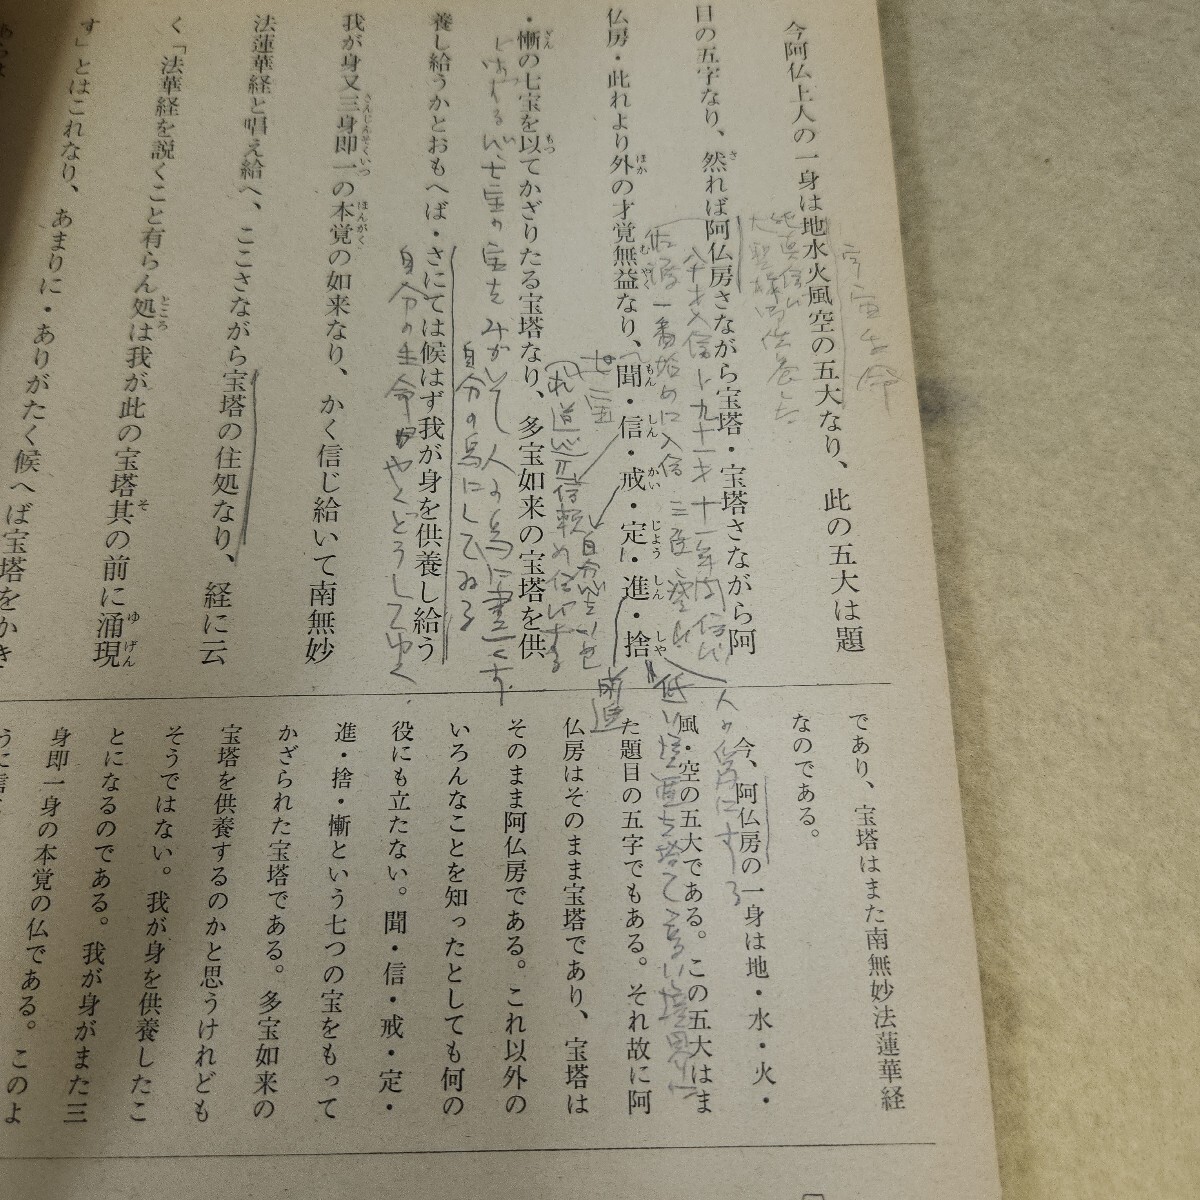 今阿仏上人の一身は地水火風空の五大なり、此の五大は題
目の五字なり、然れば阿仏房さながら宝塔・宝塔さながら阿
仏房・此れより外の才覚無益なり、聞・信・戒・定・進・捨
・慚の七宝を以てかざりたる宝塔なり、多宝如来の宝塔を供
養し給うかとおもへば・さにては候はず我が身を供養し給う
我が身又三身即一の本覚の如来なり、かく信じ給いて南無妙
法蓮華経と唱え給へ、ここさながら宝塔の住処なり、経に云
く「法華経を説くこと有らん処は我が此の宝塔其の前に涌現
す」とはこれなり、あまりに・ありがたく候へば宝塔をかき
宇宙生命
八十才入信 九十一才 十一年間信心
佐渡一番始めに入信
七宝
求道心
信頼
七宝の宝をみがいて人の為に尽くす
自分の為にしてゐる
自分の生命かやくどうしてゆく
人の為にする
低い境亜を捨て高い境界に
であり、宝塔はまた南無妙法蓮華経
なのである。
今、阿仏房の一身は地・水・火・
風・空の五大である。この五大はま
た題目の五字でもある。それ故に阿
仏房はそのまま宝塔であり、宝塔は
そのまま阿仏房である。これ以外の
いろんなことを知ったとしても何の
役にも立たない。聞・信・戒・定・
進・捨・慚という七つの宝をもって
かざられた宝塔である。多宝如来の
宝塔を供養するのかと思うけれども
そうではない。我が身を供養したこ
とになるのである。我が身がまた三
身即一身の本覚の仏である。このよ
うに信